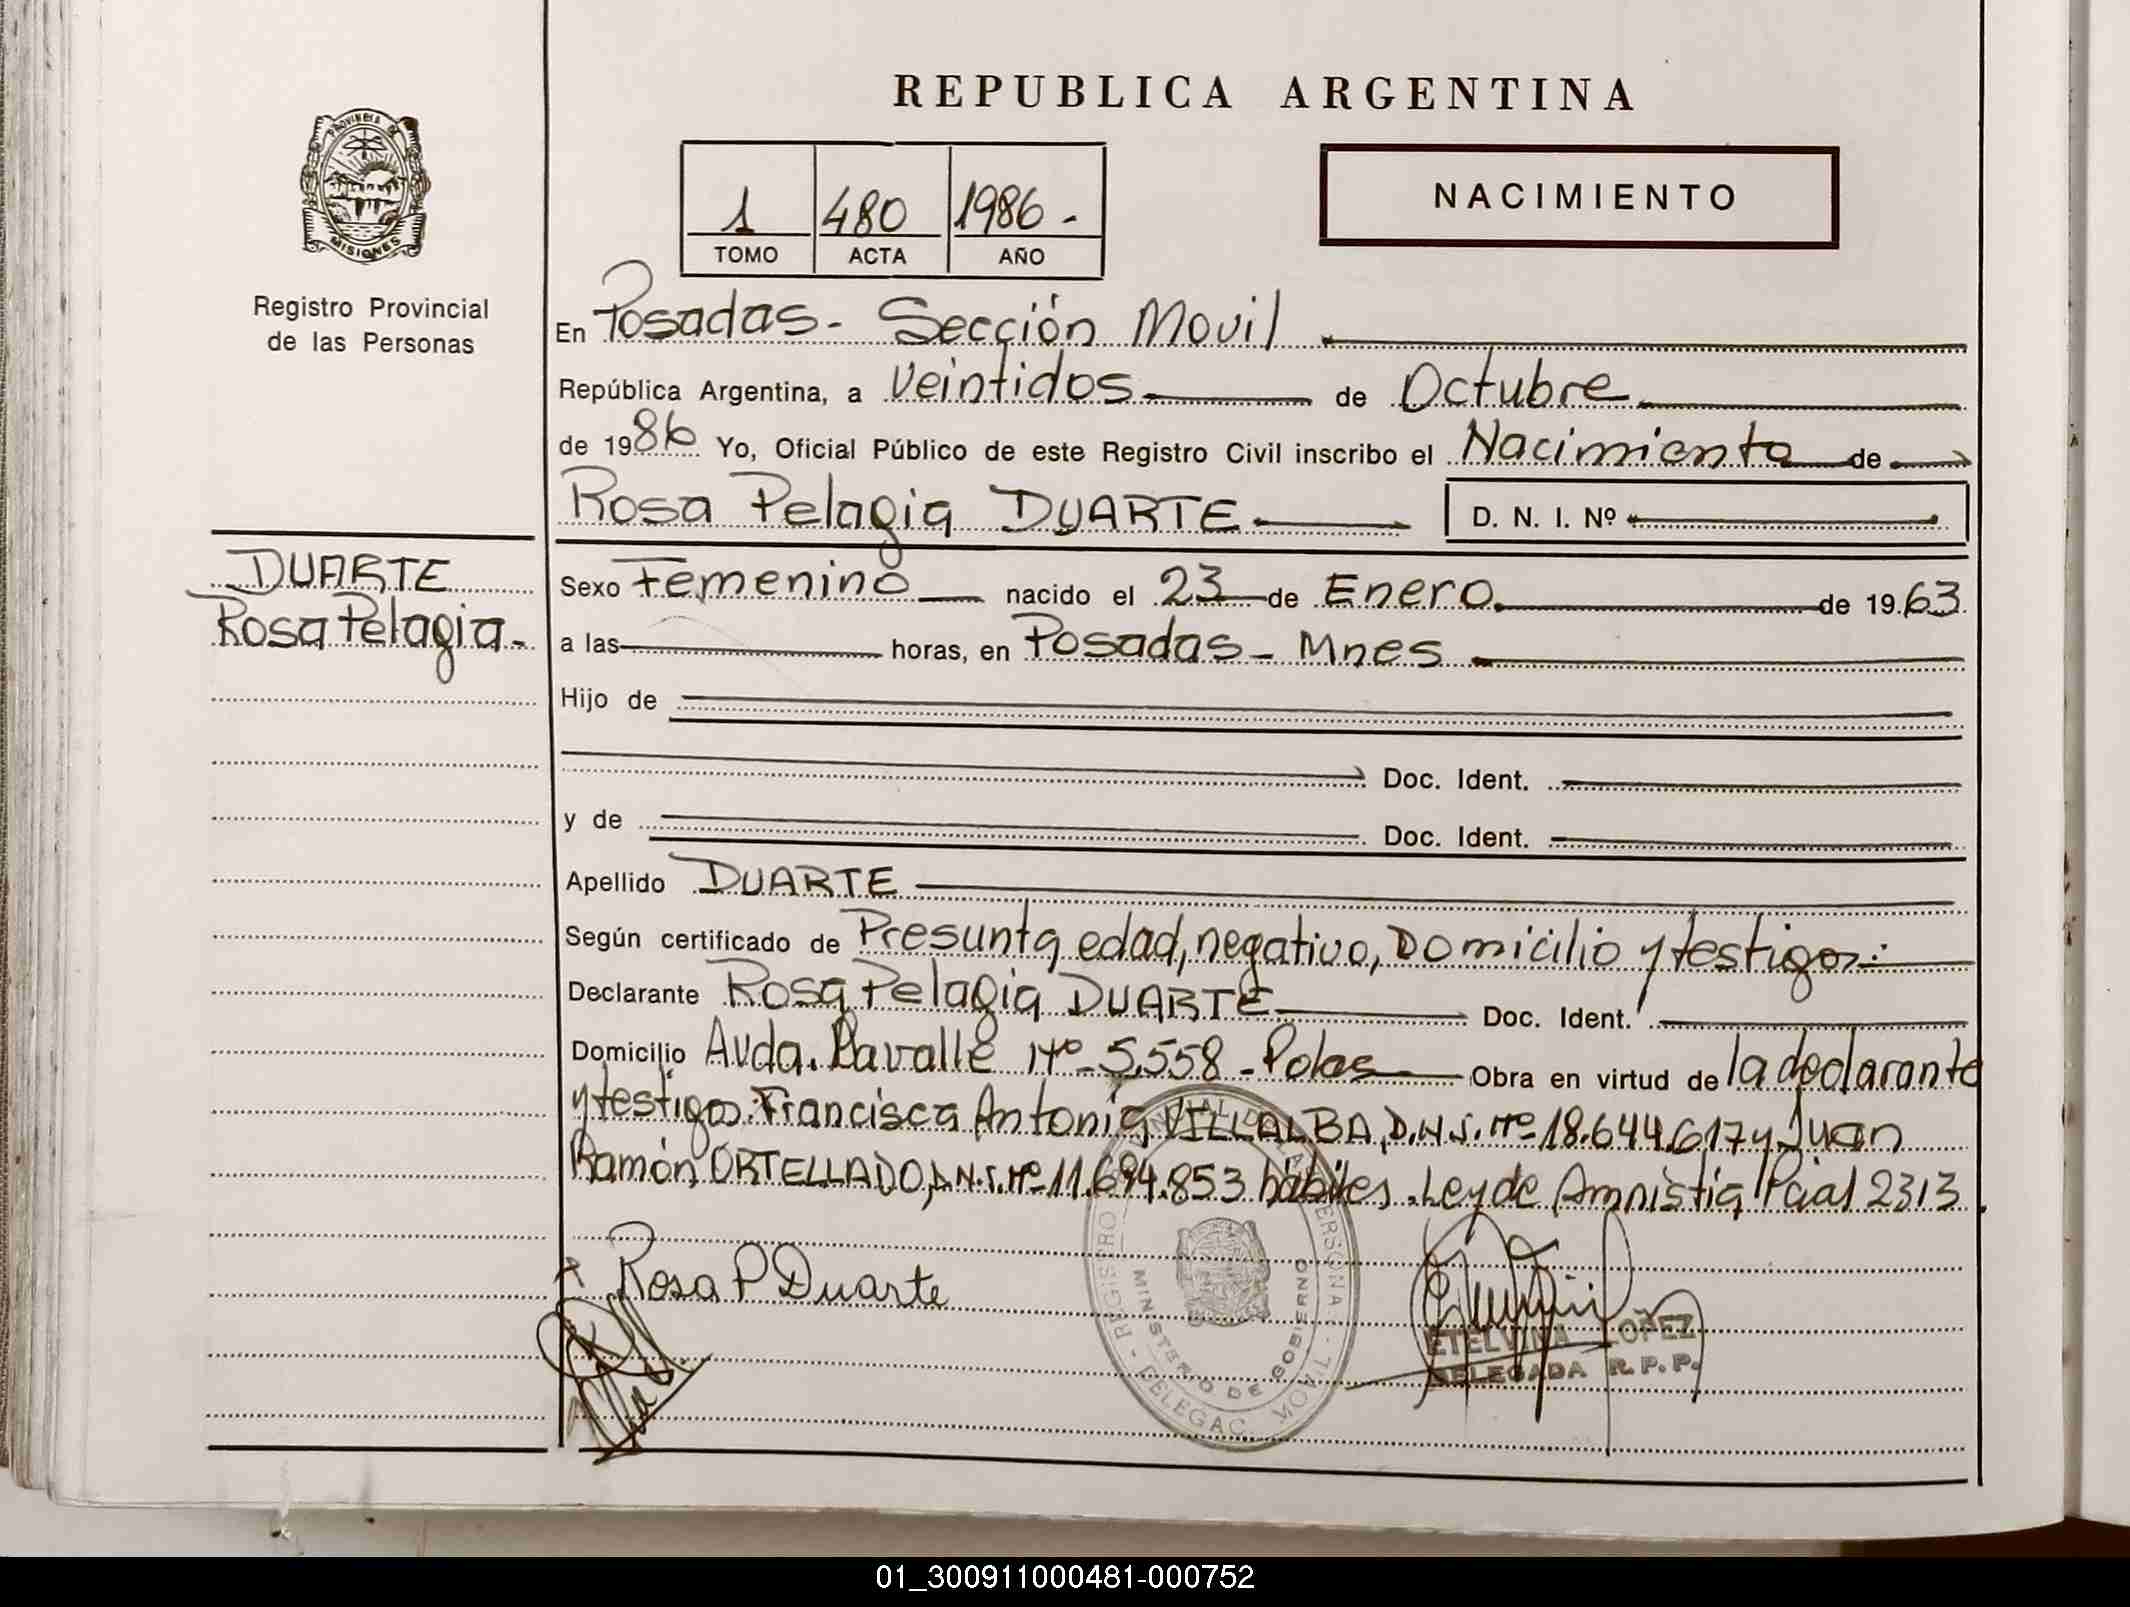 REPUBLICA ARGENTINA
PROVINCIA DE
MISIONES
Registro Provincial
de las Personas
1 480 1986 -
TOMO ACTA AÑO
NACIMIENTO
En Posadas - Sección Movil
República Argentina, a Veintidos de Octubre
de 1986 Yo, Oficial Público de este Registro Civil inscribo el Nacimiento de
Rosa Pelagia DUARTE D. N. I. Nº
DUARTE
Rosa Pelagia -
Sexo Femenino nacido el 23 de Enero de 1963
a las horas, en Posadas - Mnes
Hijo de
Doc. Ident.
y de Doc. Ident.
Apellido DUARTE
Según certificado de Presunta edad, negativo, Domicilio y testigos:
Declarante Rosa Pelagia DUARTE Doc. Ident.
Domicilio Avda. Lavalle Nº 5.558 - Pdas Obra en virtud de la declarante
y testigos: Francisca Antonia VILLALBA, D.N.I. Nº 18.644.617 y Juan
Ramón ORTELLADO, D.N.I. Nº 11.694.853 hábiles. Ley de Amnistia Pcial 2313.
Rosa P Duarte
MINISTERIO DE GOBIERNO
DELEGAC. MOVIL
ETELVINA LOPEZ
DELEGADA R. P. P.
01_300911000481-000752